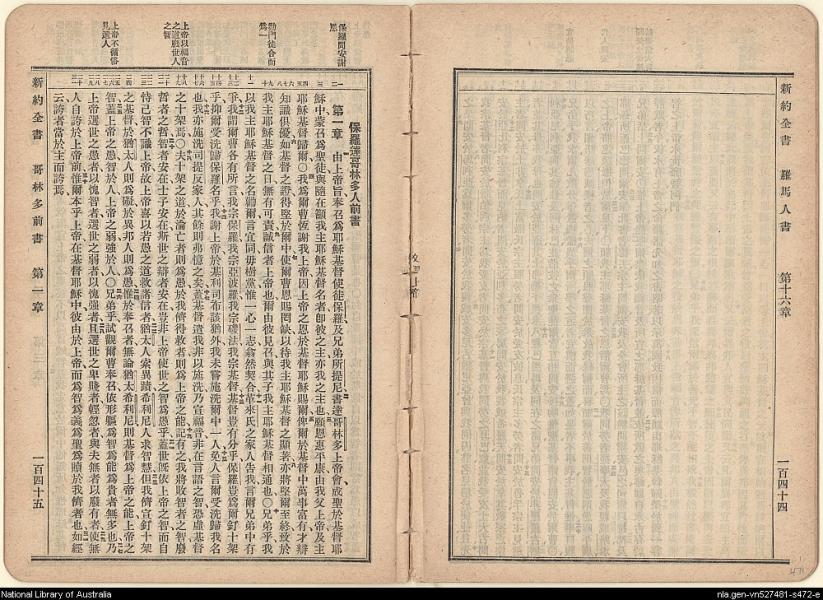 新約全書　羅馬人書　第十六章　一百四十四
保羅問安謝恩
勸門徒合而爲一
上帝以福音之道服世人之智
上帝不藉智見選人
保羅達哥林多人前書
第一章　由上帝旨奉召爲耶穌基督使徒保羅及兄弟所提尼書達哥林多上帝會成聖於基督耶
穌中蒙召爲聖徒與隨在籲我主耶穌基督名者卽彼之主亦我之主也願恩惠平康由我父上帝及主
耶穌基督歸爾〇我爲爾曹恆謝我上帝因上帝之恩於基督耶穌賜爾俾爾於基督中萬事富有才辯
知識俱優如基督之證得堅於爾中使爾曹恩賜罔缺以待我主耶穌基督之顯著亦將堅爾至終致於
我主耶穌基督之日無有可責誠信者上帝也爾由彼見召與其子我主耶穌基督相通也〇兄弟乎我
以我主耶穌基督之名勸爾言宜同毋樹黨惟一心一志翕然契合革來氏之家人告我言爾兄弟中有
爭我謂爾曹各有所言我宗保羅我宗亞波羅我宗磯法我宗基督基督豈有分乎保羅豈爲爾釘十架
乎抑爾受洗歸保羅名乎我謝上帝於基利司布該猶外我未嘗施洗爾中一人免人言爾受洗歸我名
也我亦施洗司提反家人其餘則弗憶之矣蓋基督遣我非以施洗乃宣福音非在言語之智恐虛基督
之十架焉〇夫十架之道於淪亡者則爲愚於我儕得救者則爲上帝之能記有之我將敗智者之智廢
哲者之哲智者安在士子安在斯世之辯者安在豈非上帝使世之智爲愚乎蓋世旣依上帝之智而自
恃己智不識上帝故上帝喜以若愚之道救諸信者猶太人索異蹟希利尼人求智慧但我儕宣釘十架
之基督於猶太人則爲礙於異邦人則爲愚惟於奉召者無論猶太希利尼則基督爲上帝之能上帝之
智蓋上帝之愚智於人上帝之弱強於人〇兄弟乎試觀爾曹奉召依形軀爲智爲能爲貴者無多也乃
上帝選世之愚者以愧智者選世之弱者以愧強者且選世之卑賤者輕忽者與夫無者以廢有者使無
人自誇於上帝前惟爾本乎上帝在基督耶穌中彼由於上帝而爲智爲義爲聖爲贖於我儕者也如經
云誇者當於主而誇焉
新約全書　哥林多前書　第一章　一百四十五
National Library of Australia
nla.gen-vn527481-s472-e